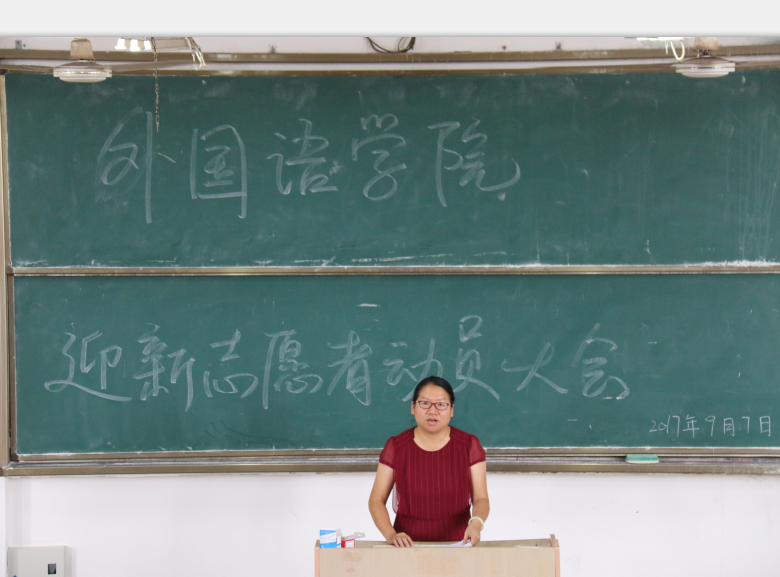 外国语学院
迎新志愿者动员大会
2017年9月7日